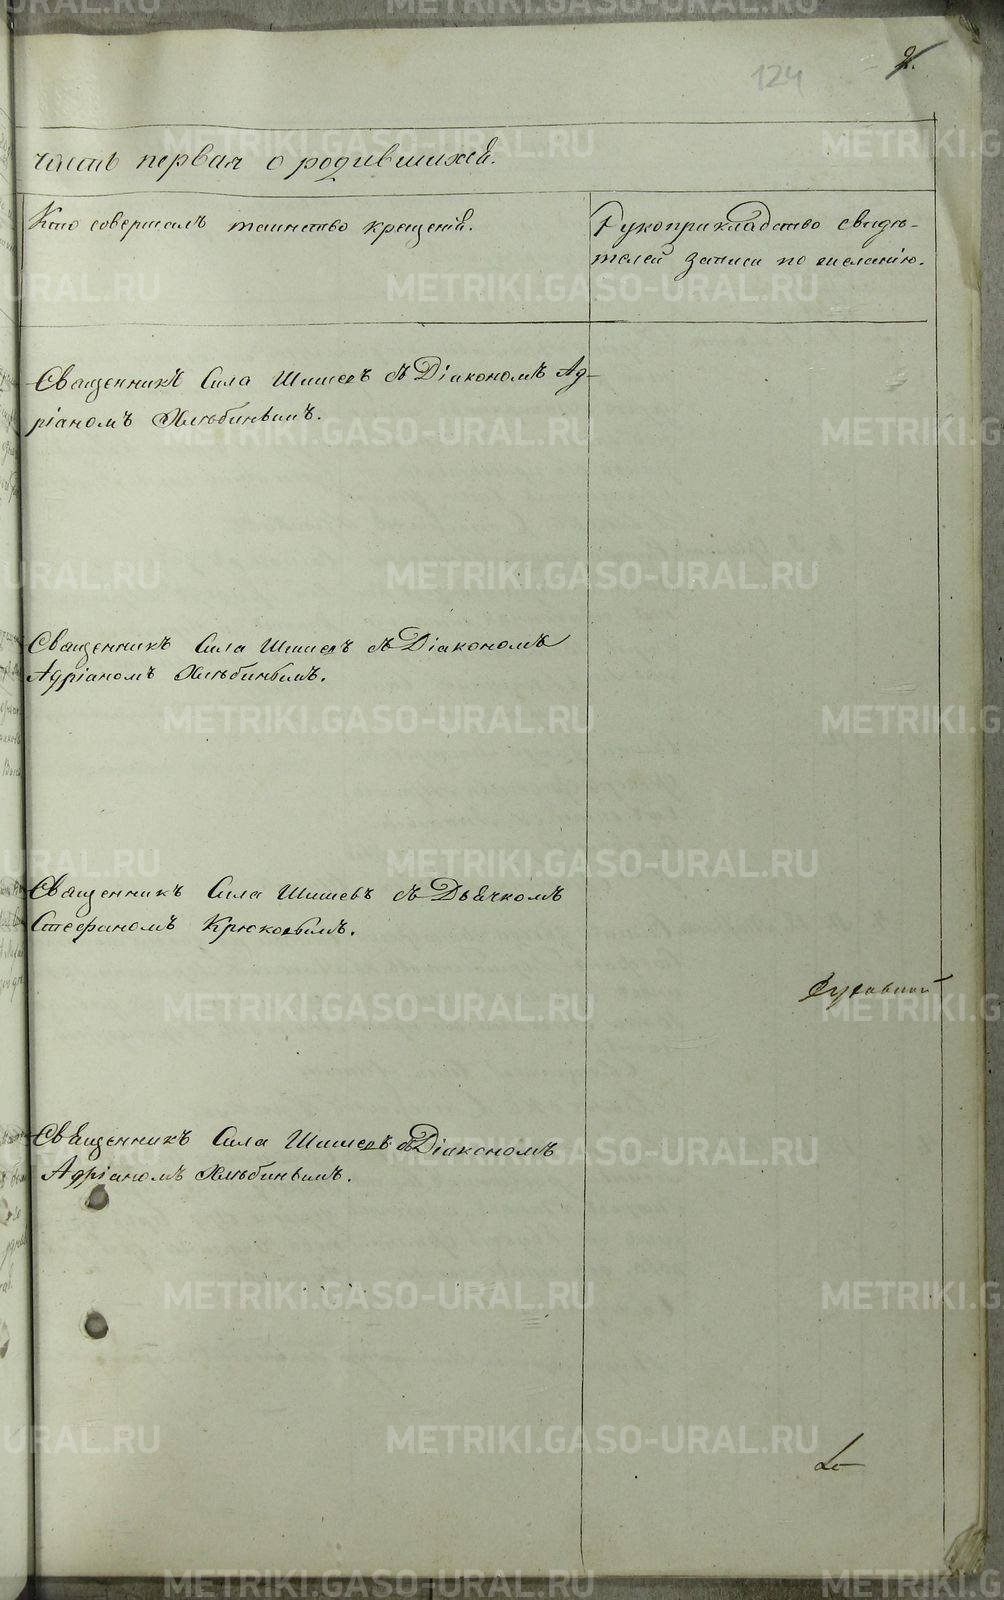 124
2.
часть первая о родившихся.
Кто совершалъ таинство крещенія.
Рукоприкладство свидѣ-
телей записи по желанію.
Священникъ Сила Шишевъ съ Діакономъ Ад-
ріаномъ Хлѣбинымъ.
Священникъ Сила Шишевъ съ Діакономъ
Адріаномъ Хлѣбинымъ.
Священникъ Сила Шишевъ съ Дьячкомъ
Стефаномъ Крюковымъ.
Священникъ Сила Шишевъ съ Діакономъ
Адріаномъ Хлѣбинымъ.
METRIKI.GASO-URAL.RU